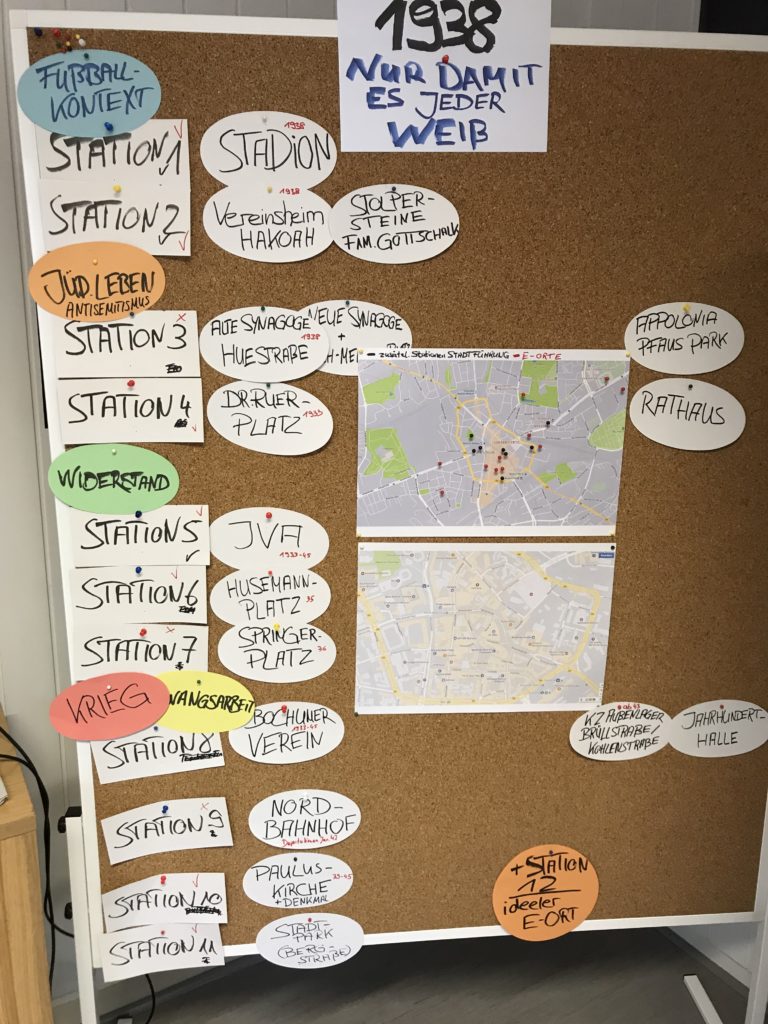 1938
NUR DAMIT
ES JEDER
WEIß
FUßBALL-
KONTEXT
STATION 1
1938
STADION
STATION 2
1938
Vereinsheim
HAKOAH
STOLPER-
STEINE
FAM. GOTTSCHALK
JÜD. LEBEN
ANTISEMITISMUS
STATION 3
ALTE SYNAGOGE
1938
HUESTRAßE
NEUE SYNAGOGE
+
APPOLONIA
PFAUS PARK
zusätzl. Stationen STADTFÜHRUNG - E-ORTE
STATION 4
DR. RUER-
PLATZ 1933
RATHAUS
WIDERSTAND
STATION 5
JVA
1933-45
STATION 6
HUSEMANN-
PLATZ 35
STATION 7
SPRINGER-
PLATZ 36
KRIEG
WANGSARBEIT
STATION 8
BOCHUMER
1933-45
VEREIN
ab 43
KZ AUßENLAGER
BRÜLLSTRAßE/
KOHLENSTRAßE
JAHRHUNDERT-
HALLE
STATION 9
NORD-
BAHNHOF
STATION 10
PAULUS-
KIRCHE 33-45
+ DENKMAL
+ STATION
12
ideeler
E-ORT
STATION 11
STADT-
PARK
(BERG-
STRAßE)